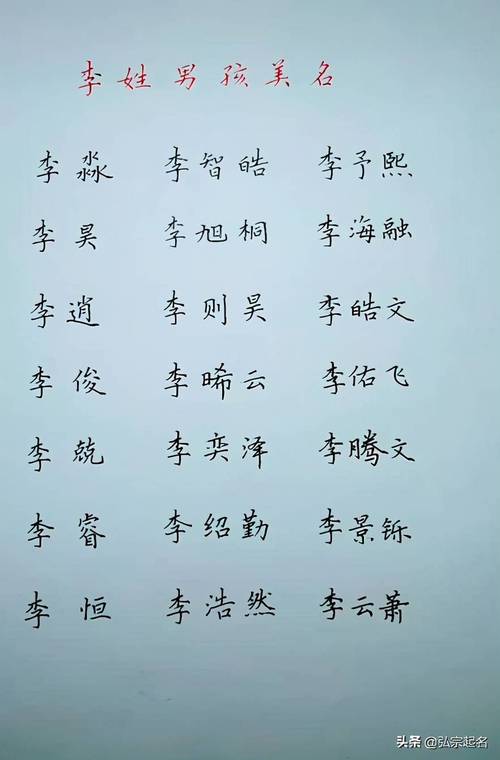 李姓男孩美名
李淼 李智皓 李予熙
李昊 李旭桐 李海融
李逍 李则昊 李皓文
李俊 李晞云 李佑飞
李兢 李奕泽 李腾文
李睿 李绍勤 李景铄
李恒 李浩然 李云萧
头条 @弘宗起名